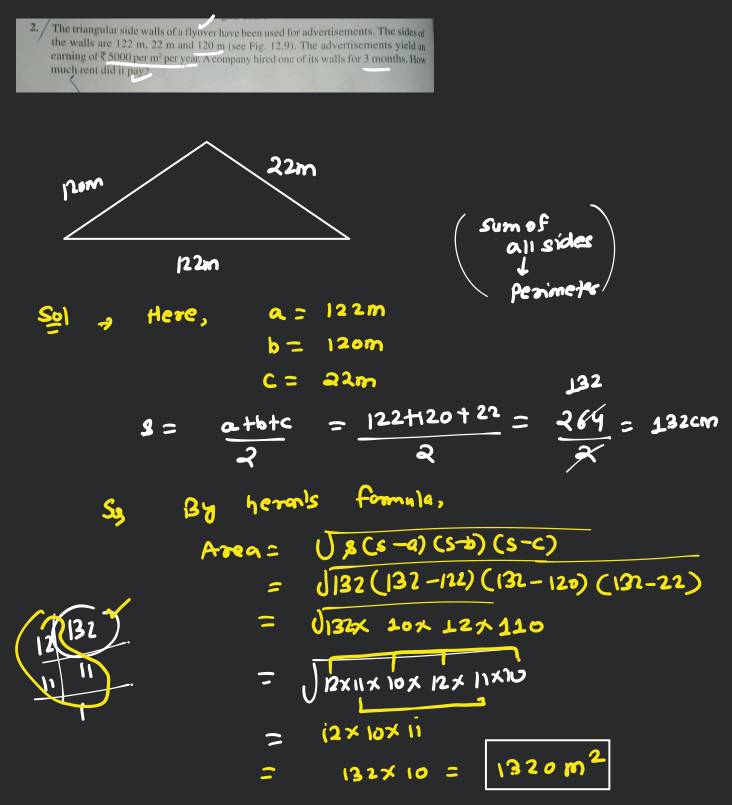 2. The triangular side walls of a flyover have been used for advertisements. The sides of
the walls are 122 m, 22 m and 120 m (see Fig. 12.9). The advertisements yield an
earning of ₹ 5000 per m² per year. A company hired one of its walls for 3 months. How
much rent did it pay?
120m
22m
122m
(sum of
all sides
↓
Perimeter)
Sol → Here, a = 122m
b = 120m
c = 22m
s = a+b+c/2 = 122+120+22/2 = 264/2 = 132cm
132
So, By heron's formula,
Area = √s(s-a)(s-b)(s-c)
= √132(132-122)(132-120)(132-22)
= √132x 10x 12x110
12 | 132
11 | 11
1
= √12x11x10x12x11x10
= 12x10x11
= 132x10 = 1320m²